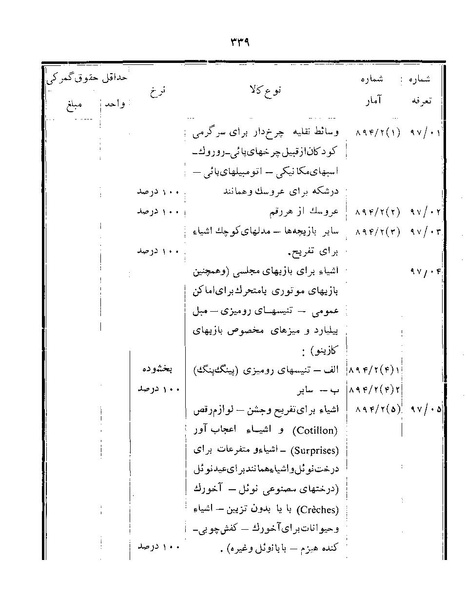 ۳۳۹
شماره تعرفه
شماره آمار
نوع کالا
نرخ
حداقل حقوق گمرکی
واحد
مبلغ
۹۷/۰۱ ۸۹۴/۲(۱) وسائط نقلیه چرخ‌دار برای سرگرمی
کودکان از قبیل چرخهای پائی - روروك -
اسبهای مکانیکی - اتومبیلهای پائی -
درشکه برای عروسك وهمانند ۱۰۰ درصد
۹۷/۰۲ ۸۹۴/۲(۲) عروسك از هر رقم ۱۰۰ درصد
۹۷/۰۳ ۸۹۴/۲(۳) سایر بازیچه‌ها - مدلهای کوچك اشیاء
برای تفریح. ۱۰۰ درصد
۹۷/۰۴ اشیاء برای بازیهای مجلسی (وهمچنین
بازیهای موتوری یا متحرك برای اماکن
عمومی - تنیسهای رومیزی - میل
بیلیارد و میزهای مخصوص بازیهای
کازینو) :
۸۹۴/۲(۴)۱ الف - تنیسهای رومیزی (پینگ‌پنگ) بخشوده
۸۹۴/۲(۴)۲ ب - سایر ۱۰۰ درصد
۹۷/۰۵ ۸۹۴/۲(۵) اشیاء برای تفریح وجشن - لوازم رقص
(Cotillon) و اشیاء اعجاب آور
(Surprises) - اشیاء و متفرعات برای
درخت نوئل و اشیاء همانند برای عید نوئل
(درختهای مصنوعی نوئل - آخورك
(Crèches) با یا بدون تزیین - اشیاء
وحیوانات برای آخورك - کفش چوبی -
کنده هیزم - بابانوئل وغیره) . ۱۰۰ درصد